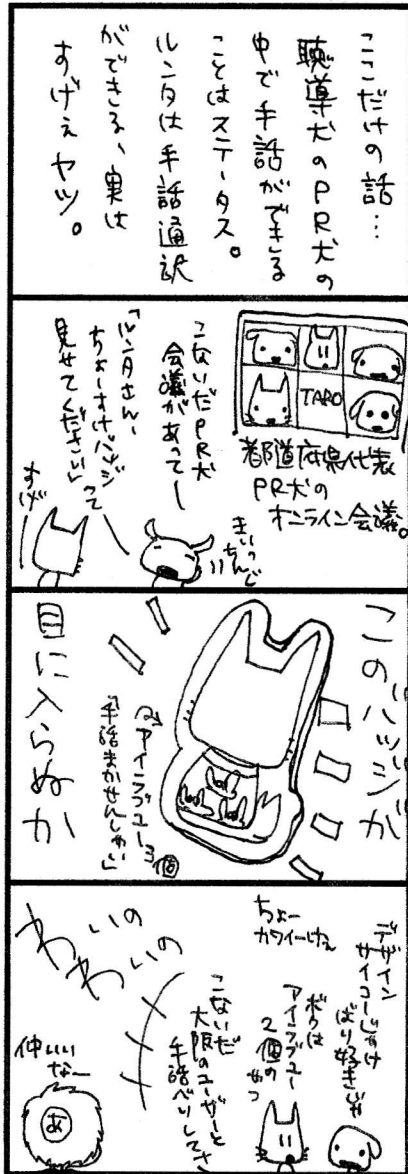 ここだけの話…
聴導犬のPR犬の
中で手話ができる
ことはステータス。
ルンタは手話通訳
ができる、実は
すげぇヤツ。
TARO
都道府県代表
PR犬の
オンライン会議。
こないだPR犬
会議があってー
「ルンタさん、
ちょーすげバッジ
見せてください」って
すげー
このバッジが
目に入らぬか
アイラブユー3個
「手話まかせんしゃい」
デザイン
サイコーじゃけ
ばり好きじゃ
ちょー
カワイーけぇ
ボクは
アイラブユー
2個のやつ
こないだ
大阪のユーザーと
手話べりしてさ
わいの
わいの
仲いい
なー
あ